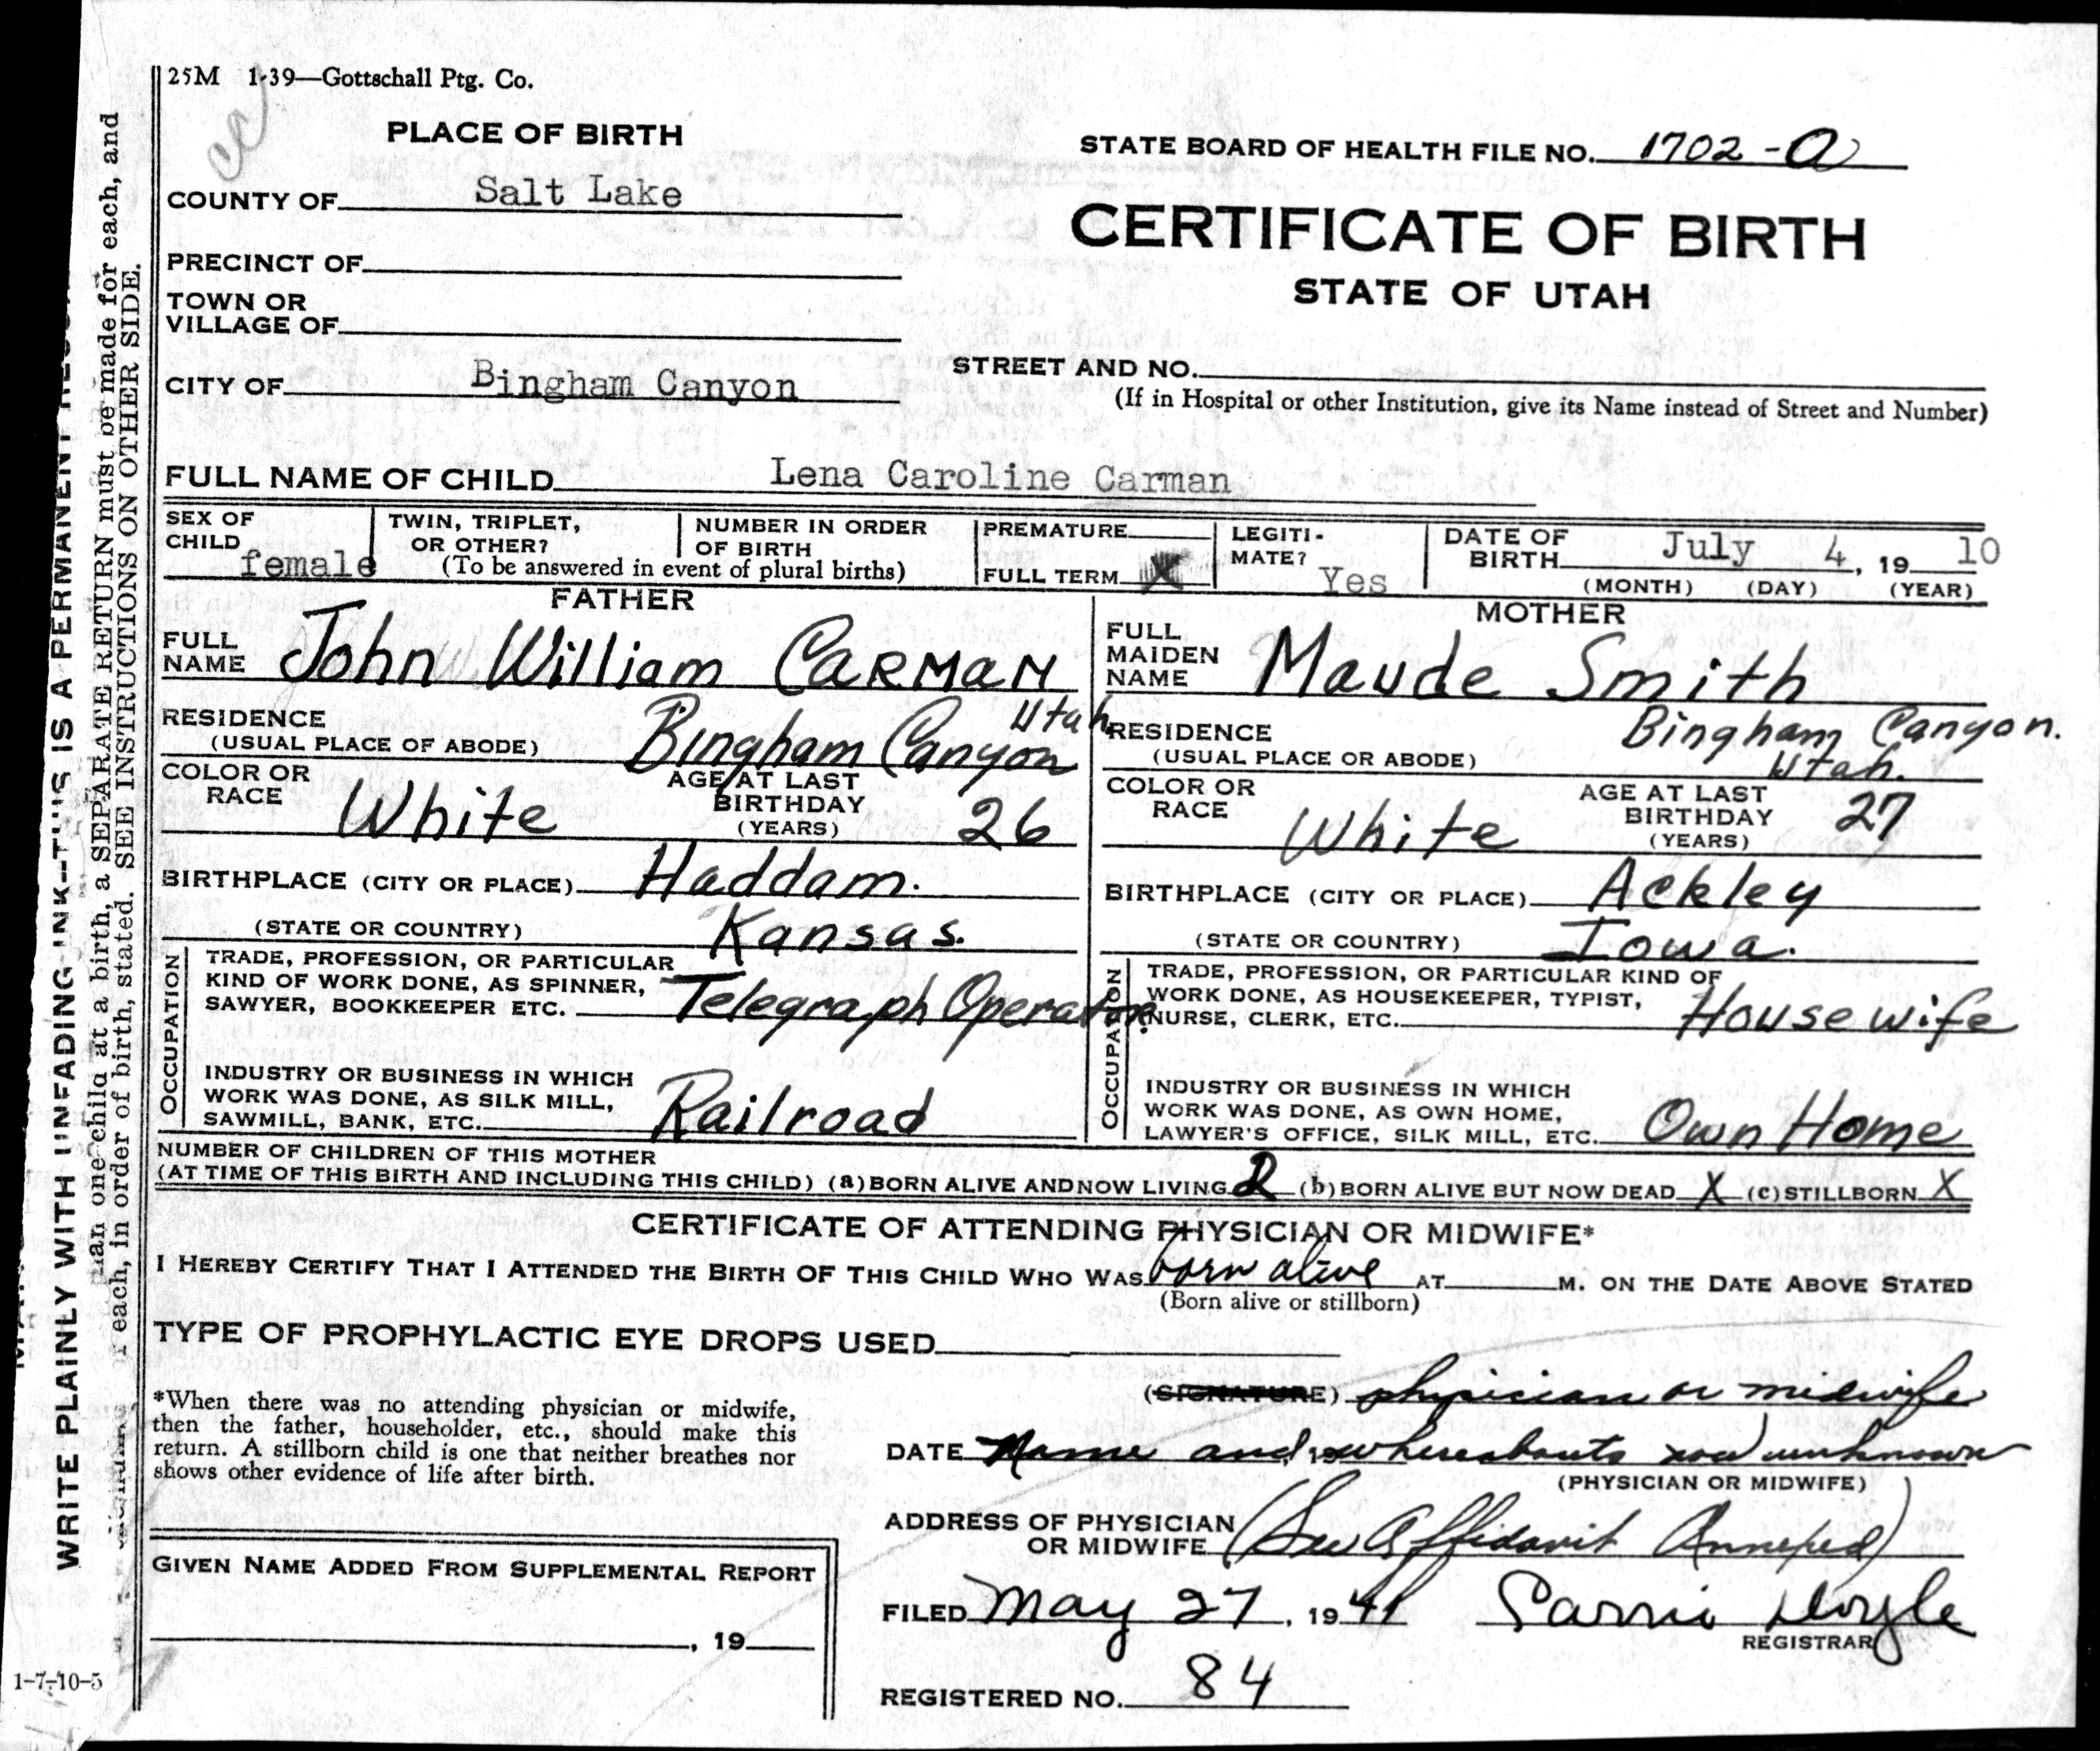 25M 1-39—Gottschall Ptg. Co.
PLACE OF BIRTH
STATE BOARD OF HEALTH FILE NO. 1702-a
COUNTY OF Salt Lake
CERTIFICATE OF BIRTH
PRECINCT OF
STATE OF UTAH
TOWN OR
VILLAGE OF
CITY OF Bingham Canyon
STREET AND NO.
(If in Hospital or other Institution, give its Name instead of Street and Number)
FULL NAME OF CHILD Lena Caroline Carman
SEX OF CHILD female
TWIN, TRIPLET, OR OTHER?
NUMBER IN ORDER OF BIRTH
(To be answered in event of plural births)
PREMATURE
FULL TERM X
LEGITI-
MATE? Yes
DATE OF
BIRTH July 4, 19 10
(MONTH) (DAY) (YEAR)
FATHER
FULL
NAME John William CARMAN
RESIDENCE
(USUAL PLACE OF ABODE) Bingham Canyon Utah
COLOR OR
RACE White
AGE AT LAST
BIRTHDAY
(YEARS) 26
BIRTHPLACE (CITY OR PLACE) Haddam.
(STATE OR COUNTRY) Kansas.
OCCUPATION
TRADE, PROFESSION, OR PARTICULAR
KIND OF WORK DONE, AS SPINNER,
SAWYER, BOOKKEEPER ETC. Telegraph Operator.
INDUSTRY OR BUSINESS IN WHICH
WORK WAS DONE, AS SILK MILL,
SAWMILL, BANK, ETC. Railroad
MOTHER
FULL
MAIDEN
NAME Maude Smith
RESIDENCE
(USUAL PLACE OR ABODE) Bingham Canyon.
Utah.
COLOR OR
RACE White
AGE AT LAST
BIRTHDAY
(YEARS) 27
BIRTHPLACE (CITY OR PLACE) Ackley
(STATE OR COUNTRY) Iowa.
OCCUPATION
TRADE, PROFESSION, OR PARTICULAR KIND OF
WORK DONE, AS HOUSEKEEPER, TYPIST,
NURSE, CLERK, ETC. Housewife
INDUSTRY OR BUSINESS IN WHICH
WORK WAS DONE, AS OWN HOME,
LAWYER'S OFFICE, SILK MILL, ETC. Own Home
NUMBER OF CHILDREN OF THIS MOTHER
(AT TIME OF THIS BIRTH AND INCLUDING THIS CHILD) (a) BORN ALIVE AND NOW LIVING 2 (b) BORN ALIVE BUT NOW DEAD X (c) STILLBORN X
CERTIFICATE OF ATTENDING PHYSICIAN OR MIDWIFE*
I HEREBY CERTIFY THAT I ATTENDED THE BIRTH OF THIS CHILD WHO WAS born alive AT M. ON THE DATE ABOVE STATED
(Born alive or stillborn)
TYPE OF PROPHYLACTIC EYE DROPS USED
*When there was no attending physician or midwife,
then the father, householder, etc., should make this
return. A stillborn child is one that neither breathes nor
shows other evidence of life after birth.
(SIGNATURE) physician or midwife
DATE Name and, 19 whereabouts now unknown
(PHYSICIAN OR MIDWIFE)
ADDRESS OF PHYSICIAN
OR MIDWIFE (See Affidavit Annexed)
GIVEN NAME ADDED FROM SUPPLEMENTAL REPORT
, 19
FILED May 27, 1941 Doyle
REGISTRAR
REGISTERED NO. 84
1-7-10-5
WRITE PLAINLY WITH UNFADING INK—THIS IS A PERMANENT
than one child at a birth, a SEPARATE RETURN must be made for each, and
of each, in order of birth, stated. SEE INSTRUCTIONS ON OTHER SIDE.